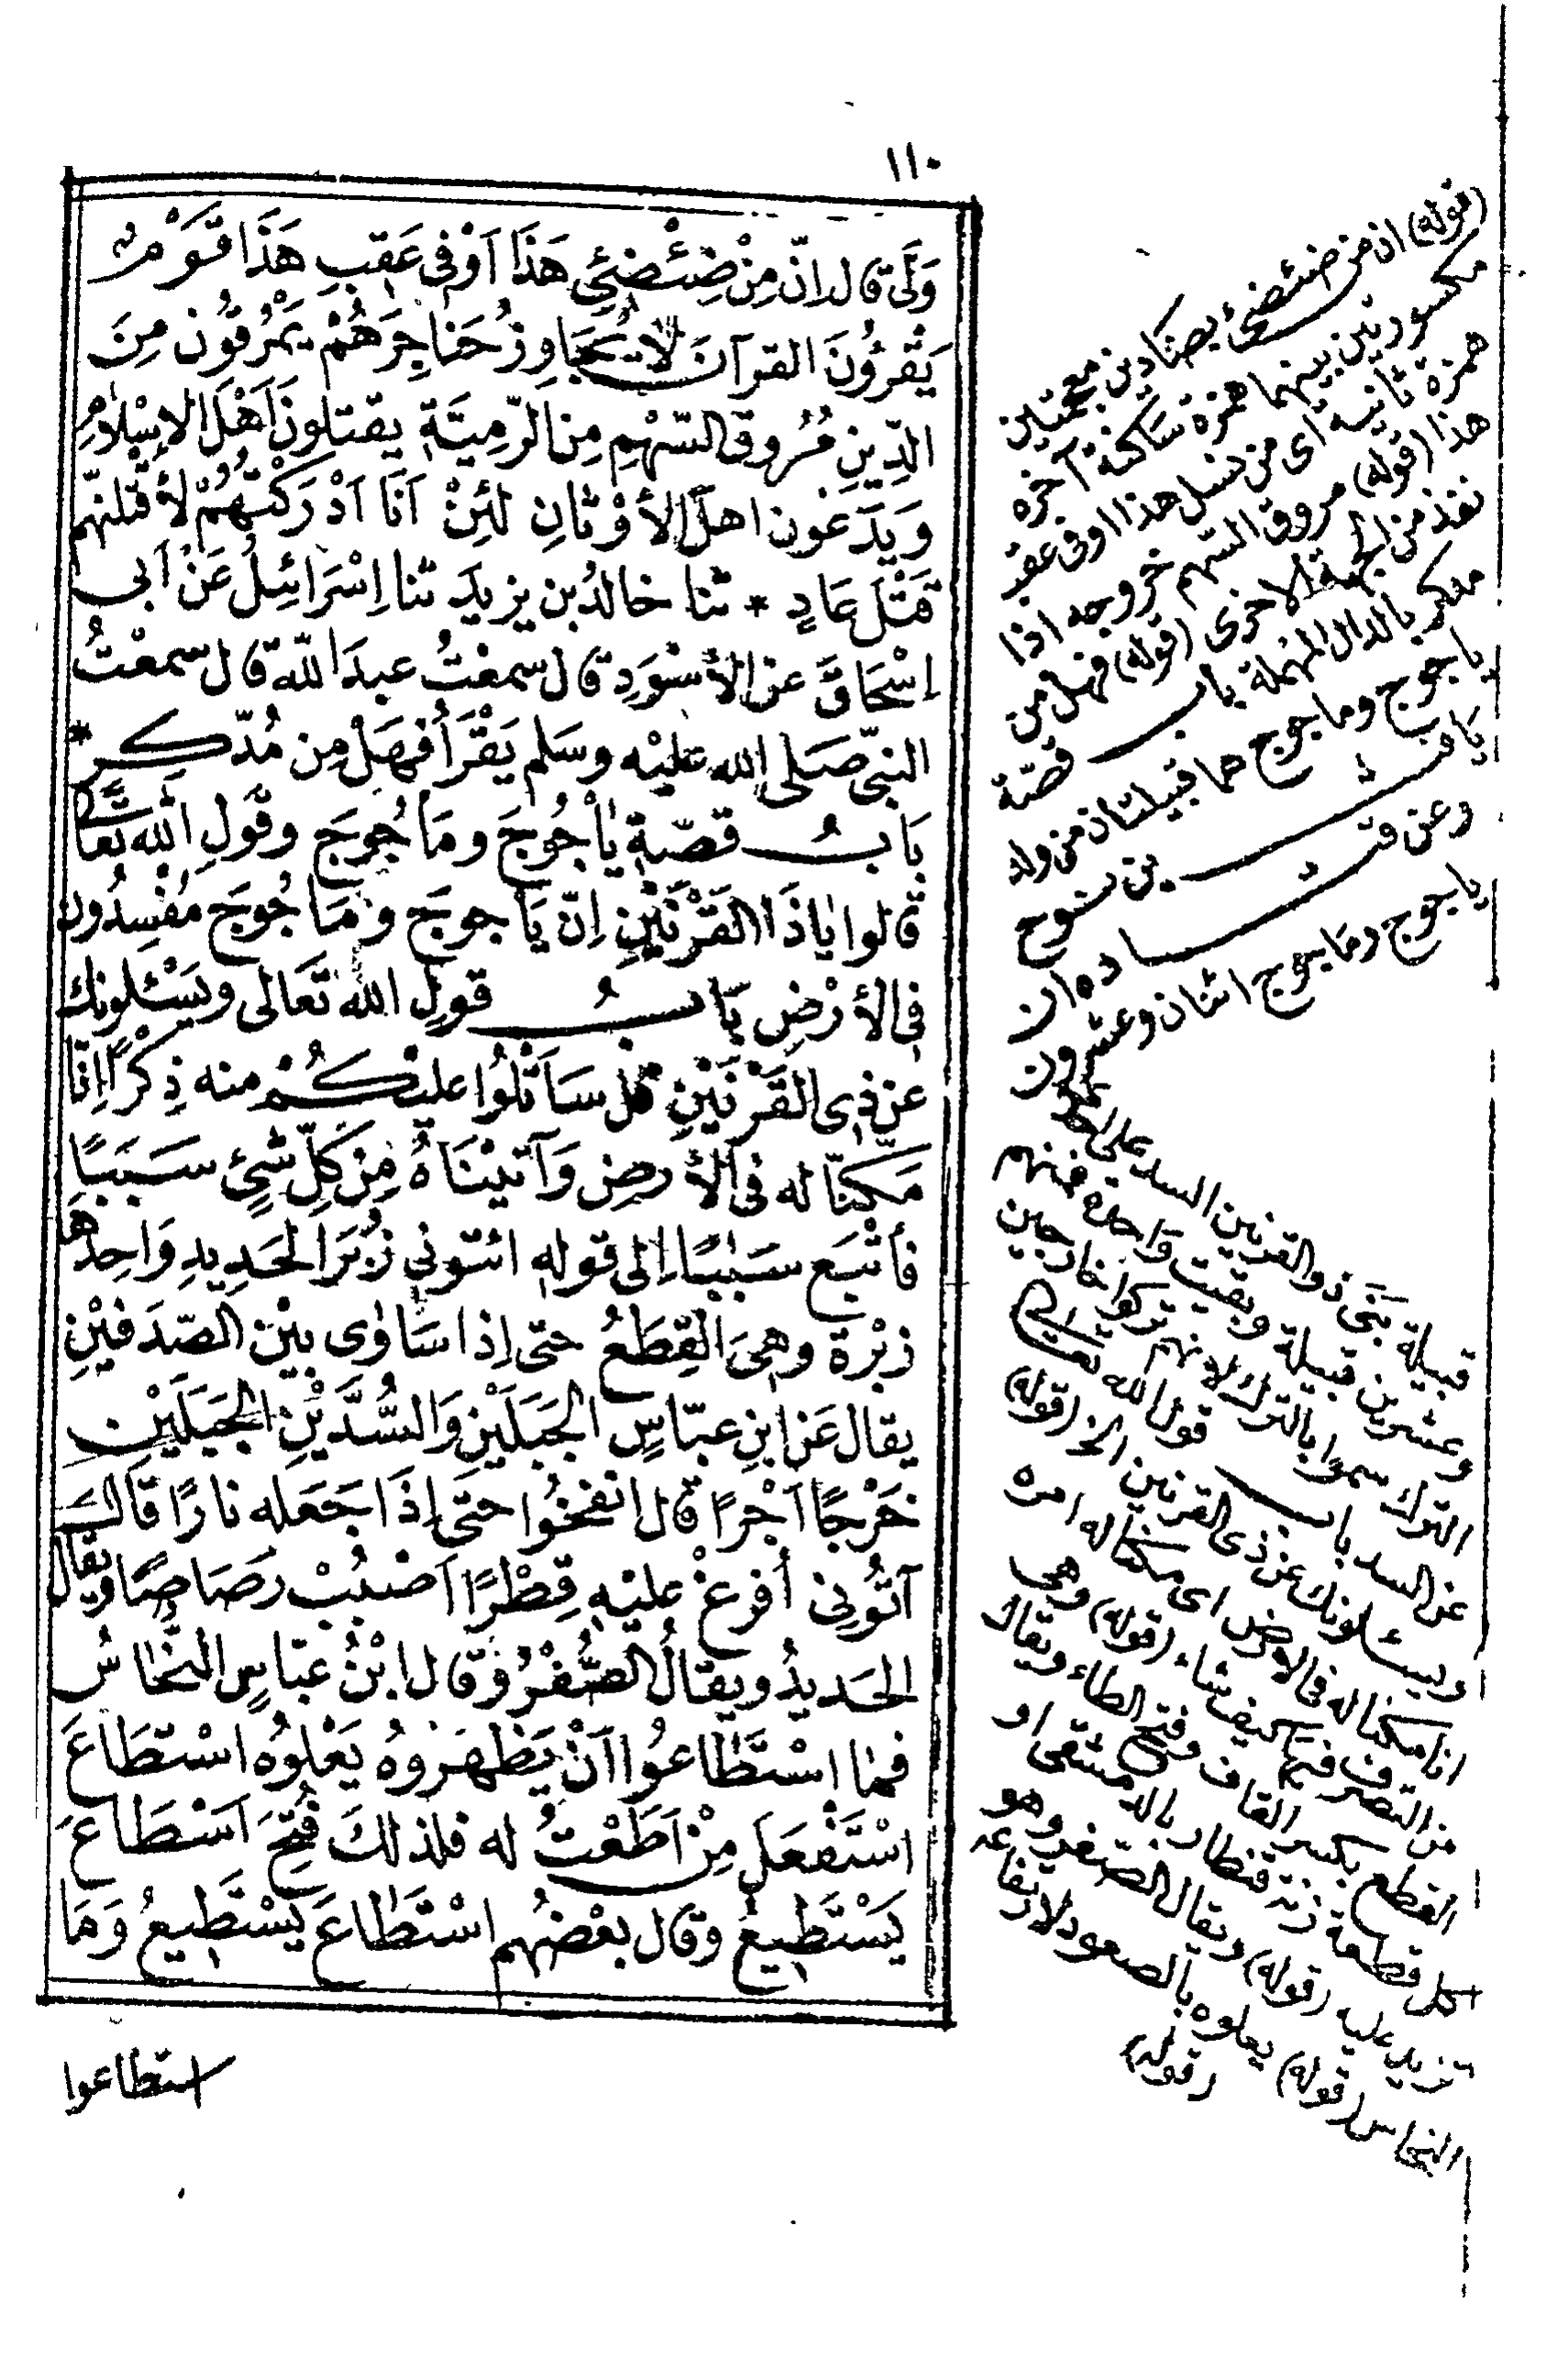 ١١٠
وَلَّى قال انّ مِنْ ضِئْضِئِ هَذَا اَوْ فى عَقِبِ هَذَا قَوْمٌ
يَقْرَؤُنَ القرآنَ لا يُجَاوِزُ حَنَاجِرَهُمْ يَمْرُقُون مِنَ
الدِّينِ مُرُوقَ السّهْمِ مِنَ الرّمِيَّةِ يقتلونَ اَهْلَ الاِسْلامِ
وَيَدَعُون اهلَ الأَوْثانِ لَئِنْ اَنَا اَدْرَكْتُهُمْ لأَقْتُلَنّهم
قَتْلَ عَادٍ * ثنا خالدُ بن يزيدَ ثنا اِسْرَائيلُ عَنْ اَبى
اِسْحَاقَ عن الأَسْوَدِ قال سمعْتُ عبدَ الله قال سمعْتُ
النبىّ صَلى الله عليْه وسَلم يَقْرَأُ فهَلْ مِن مُدّكِرٍ *
بَابُ قصّةِ يَأْجُوجَ ومَأْجُوجَ وقَولِ الله تَعَالَى
قالوا يَاذَا القَرْنَيْنِ اِنّ يَأجوجَ ومَأجُوجَ مُفْسِدُون
فى الأَرْضِ بَابُ قولِ الله تَعَالى ويَسْئلونك
عن ذِى القَرْنَيْنِ قل سَاَتْلُوا عليْكُمْ منه ذِكْرًا اِنّا
مَكنّا له فى الأَرضِ وَآتيْنَاهُ مِنْ كلّ شَىْءٍ سَبَبًا
فأتْبَعَ سَبَبًا اِلى قوله ائتونى زُبَرَ الحَدِيدِ وَاحِدُها
زبْرة وهىَ القِطَعُ حتى اِذا سَاوَى بيْن الصّدَفَيْنِ
يقال عَن ابنِ عبّاسٍ الجَبَلَيْنِ وَالسُّدَّيْنِ الجَبَلَيْنِ
خَرْجًا اَجْرًا قال انفخُوا حتى اِذَا جَعَله نارًا قَالَ
آتُونِى اُفرغْ عليْهِ قِطْرًا اَصْبُبْ رَصَاصًا ويقال
الحَديدُ ويقالُ الصُّفْرُ وَقال ابْنُ عبّاسٍ النّحَاسُ
فما اسْتَطَاعُوا اَنْ يَظْهَرُوهُ يَعْلوُه اسْتَطَاعَ
اسْتَفْعَلَ مِنْ اَطَعْتُ له فلذلكَ فُتِحَ اَسْطَاعَ
يَسْتَطيعُ وقال بعْضُهم اسْتَطَاعَ يَسْتَطيعُ وَمَا
استطاعوا
(قوله) ان من ضئضئ بصادين معجمتين
مكسورتين بينهما همزة ساكنة آخره
همزة ثانية اى من نسل هذا او فى عقب
هذا (قوله) مروق السهم خروجه اذا
نفذ من الجهة الاخرى (قوله) فهل من
مدكر بالدال المهملة باب قصّة
ياجوج وماجوج هما قبيلتان من ولد
يافث بن نوح
وعن قتادة ان
ياجوج وماجوج اثنان وعشرون
قبيلة بَنى ذو القرنين السد على
وعشرين قبيلة وبقيت واحدة فهم
الترك سموا بالترك لانهم تركوا خارجين
عن السد باب قول الله تعالى
ويسئلونك عن ذى القرنين الخ (قوله)
انا مكنا له فى الارض اى مكنا له امره
من التصرف فيها كيف شاء (قوله) وهى
القطع بكسر القاف وفتح الطاء ويقال
كل قطعة زنة قنطار بالدمشقى او
تزيد عليه (قوله) ويقال الصفر وهو
النحاس (قوله) يعلوه بالصعود لارتفاعه
(قوله)